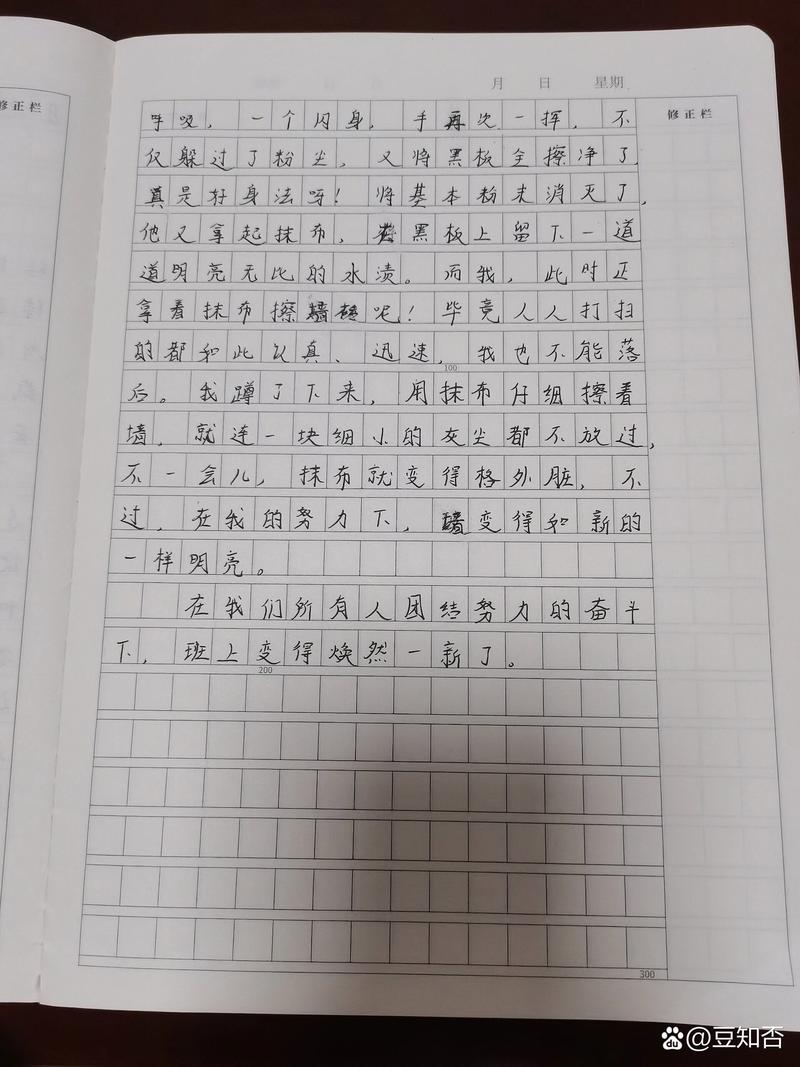 修正栏
月 日 星期
修正栏
呼吸，一个闪身，手再次一挥，不
仅躲过了粉尘，又将黑板全擦净了，
真是好身法呀！将基本粉末消灭了，
他又拿起抹布，在黑板上留下一道
道明亮无比的水渍。而我，此时正
拿着抹布擦墙砖呢！毕竟人人打扫
的都如此认真、迅速，我也不能落
100
后。我蹲了下来，用抹布仔细擦着
墙，就连一块细小的灰尘都不放过，
不一会儿，抹布就变得格外脏，不
过，在我的努力下，墙变得和新的
一样明亮。
在我们所有人团结努力的奋斗
下，班上变得焕然一新了。
200
300
@豆知否